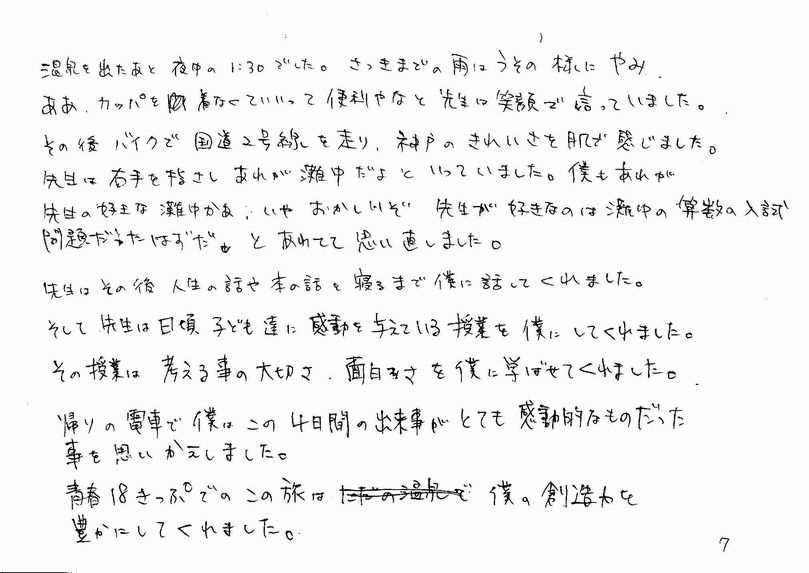 温泉を出たあと 夜中の1:30でした。さっきまでの雨はうその様に やみ
ああ、カッパを着なくていいって便利やなと先生は笑顔で言っていました。
その後 バイクで 国道2号線を走り、神戸の きれいさを肌で感じました。
先生は 右手を指さし あれが灘中だよ といっていました。僕もあれが
先生の好きな灘中かあ、いや おかしいぞ 先生が好きなのは灘中の算数の入試
問題だったはずだ。と あわてて 思い直しました。
先生はその後 人生の話や本の話を寝るまで僕に話してくれました。
そして先生は日頃 子ども達に感動を与えている授業を僕にしてくれました。
その授業は 考える事の大切さ、面白さを僕に学ばせてくれました。
帰りの電車で僕はこの4日間の出来事がとても感動的なものだった
事を思いかえしました。
青春18きっぷでのこの旅は ただの温泉で 僕の創造力を
豊かにしてくれました。
7